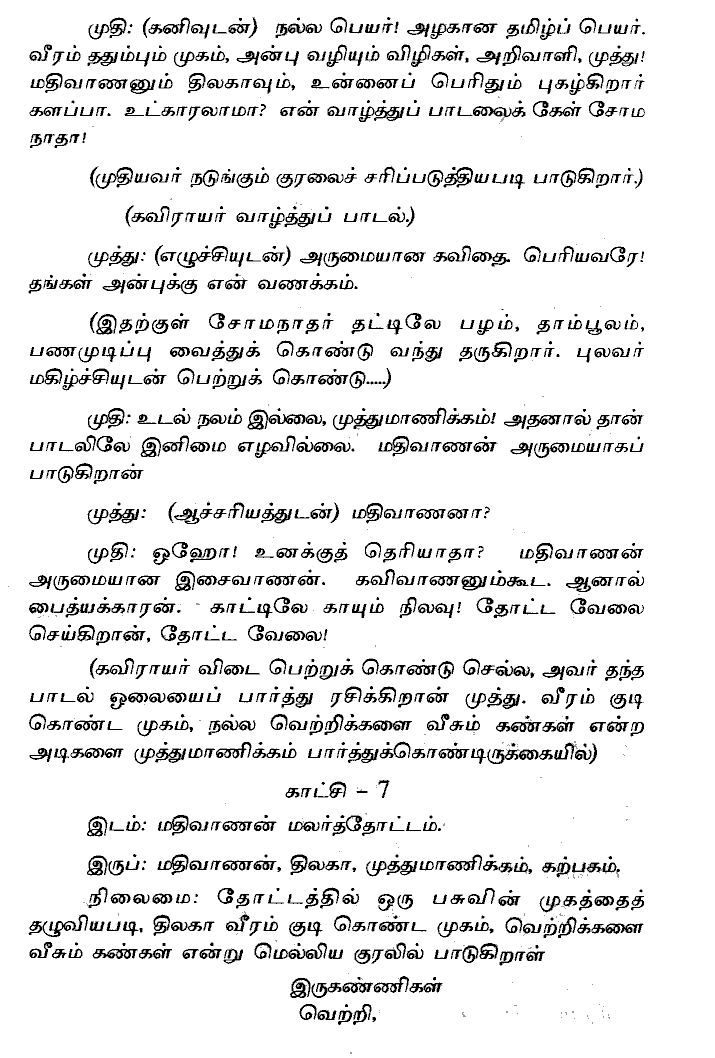 முதி: (கனிவுடன்) நல்ல பெயர்! அழகான தமிழ்ப் பெயர்.
வீரம் ததும்பும் முகம், அன்பு வழியும் விழிகள், அறிவாளி, முத்து!
மதிவாணனும் திலகாவும், உன்னைப் பெரிதும் புகழ்கிறார்
களப்பா. உட்காரலாமா? என் வாழ்த்துப் பாடலைக் கேள் சோம
நாதா!
(முதியவர் நடுங்கும் குரலைச் சரிப்படுத்தியபடி பாடுகிறார்.)
(கவிராயர் வாழ்த்துப் பாடல்.)
முத்து: (எழுச்சியுடன்) அருமையான கவிதை. பெரியவரே!
தங்கள் அன்புக்கு என் வணக்கம்.
(இதற்குள் சோமநாதர் தட்டிலே பழம், தாம்பூலம்,
பணமுடிப்பு வைத்துக் கொண்டு வந்து தருகிறார். புலவர்
மகிழ்ச்சியுடன் பெற்றுக் கொண்டு.....)
முதி: உடல் நலம் இல்லை, முத்துமாணிக்கம்! அதனால் தான்
பாடலிலே இனிமை எழவில்லை. மதிவாணன் அருமையாகப்
பாடுகிறான்
முத்து: (ஆச்சரியத்துடன்) மதிவாணனா?
முதி: ஒஹோ! உனக்குத் தெரியாதா? மதிவாணன்
அருமையான இசைவாணன். கவிவாணனும்கூட. ஆனால்
பைத்யக்காரன். காட்டிலே காயும் நிலவு! தோட்ட வேலை
செய்கிறான், தோட்ட வேலை!
(கவிராயர் விடை பெற்றுக் கொண்டு செல்ல, அவர் தந்த
பாடல் ஓலையைப் பார்த்து ரசிக்கிறான் முத்து. வீரம் குடி
கொண்ட முகம், நல்ல வெற்றிக்களை வீசும் கண்கள் என்ற
அடிகளை முத்துமாணிக்கம் பார்த்துக்கொண்டிருக்கையில்)
காட்சி – 7
இடம்: மதிவாணன் மலர்த்தோட்டம்.
இருப்: மதிவாணன், திலகா, முத்துமாணிக்கம், கற்பகம்.
நிலைமை: தோட்டத்தில் ஒரு பசுவின் முகத்தைத்
தழுவியபடி, திலகா வீரம் குடி கொண்ட முகம், வெற்றிக்களை
வீசும் கண்கள் என்று மெல்லிய குரலில் பாடுகிறாள்
இருகண்ணிகள்
வெற்றி,